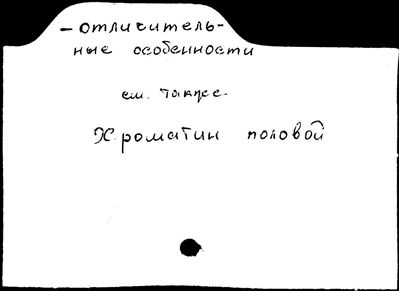 - отличитель-
ные особенности
см. также
Хроматин половой